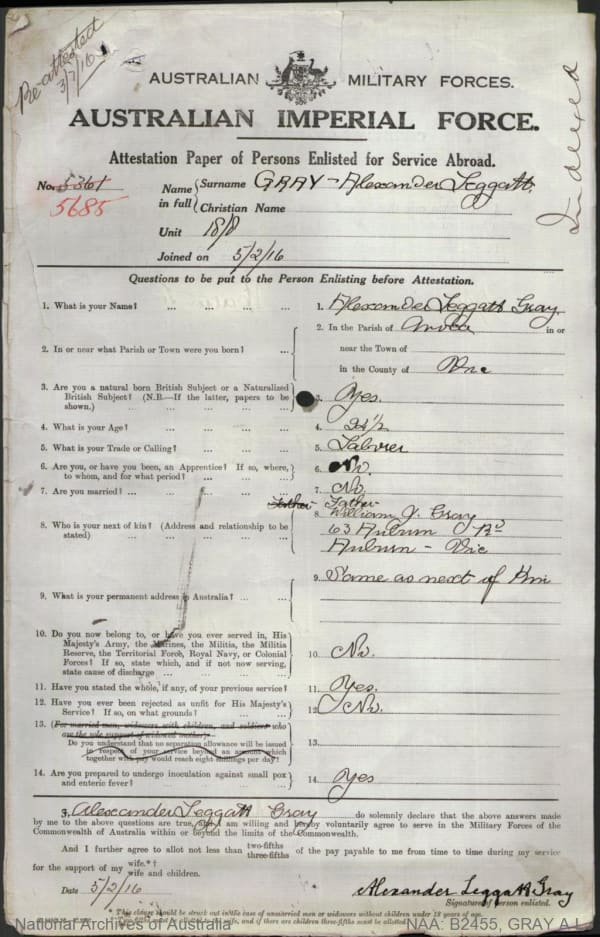 Pre-attested
3/2/16
Indexed
AUSTRALIAN MILITARY FORCES.
AUSTRALIAN IMPERIAL FORCE.
Attestation Paper of Persons Enlisted for Service Abroad.
No. 5361
5685
Name in full
Surname GRAY - Alexander Leggatt.
Christian Name
Unit 18/8
Joined on 5/2/16
Questions to be put to the Person Enlisting before Attestation.
1. What is your Name? ... ... ... ...
1. Alexander Leggatt Gray
2. In or near what Parish or Town were you born? ...
2. In the Parish of in or
near the Town of
in the County of Vic
3. Are you a natural born British Subject or a Naturalized
British Subject? (N.B.—If the latter, papers to be
shown.) ... ... ... ... ...
3. Yes.
4. What is your Age? ... ... ... ...
4. 24½
5. What is your Trade or Calling? ... ... ...
5. Laborer
6. Are you, or have you been, an Apprentice? If so, where,
to whom, and for what period? ... ... ...
6. No.
7. Are you married? ... ... ... ... ...
7. No.
8. Who is your next of kin? (Address and relationship to be
stated) ... ... ... ... ...
Father Father
8. William J. Gray
63 Auburn Rd
Auburn - Vic
9. What is your permanent address in Australia? ... ...
9. Same as next of Kin
10. Do you now belong to, or have you ever served in, His
Majesty's Army, the Marines, the Militia, the Militia
Reserve, the Territorial Force, Royal Navy, or Colonial
Forces? If so, state which, and if not now serving,
state cause of discharge ... ... ... ...
10. No.
11. Have you stated the whole, if any, of your previous service?
11. Yes.
12. Have you ever been rejected as unfit for His Majesty's
Service? If so, on what grounds? ... ... ...
12. No.
13. (For married men, widowers with children, and soldiers who
are the sole support of widowed mother)—
Do you understand that no separation allowance will be issued
in respect of your service beyond an amount which
together with pay would reach eight shillings per day?
13.
14. Are you prepared to undergo inoculation against small pox
and enteric fever? ... ... ... ... ...
14. Yes
I, Alexander Leggatt Gray do solemnly declare that the above answers made
by me to the above questions are true, and I am willing and hereby voluntarily agree to serve in the Military Forces of the
Commonwealth of Australia within or beyond the limits of the Commonwealth.
And I further agree to allot not less than two-fifths three-fifths of the pay payable to me from time to time during my service
for the support of my wife.*† wife and children.
Date 5/2/16
Alexander Leggatt Gray
Signature of person enlisted.
* This clause should be struck out in the case of unmarried men or widowers without children under 18 years of age.
National Archives of Australia
NAA: B2455, GRAY A L